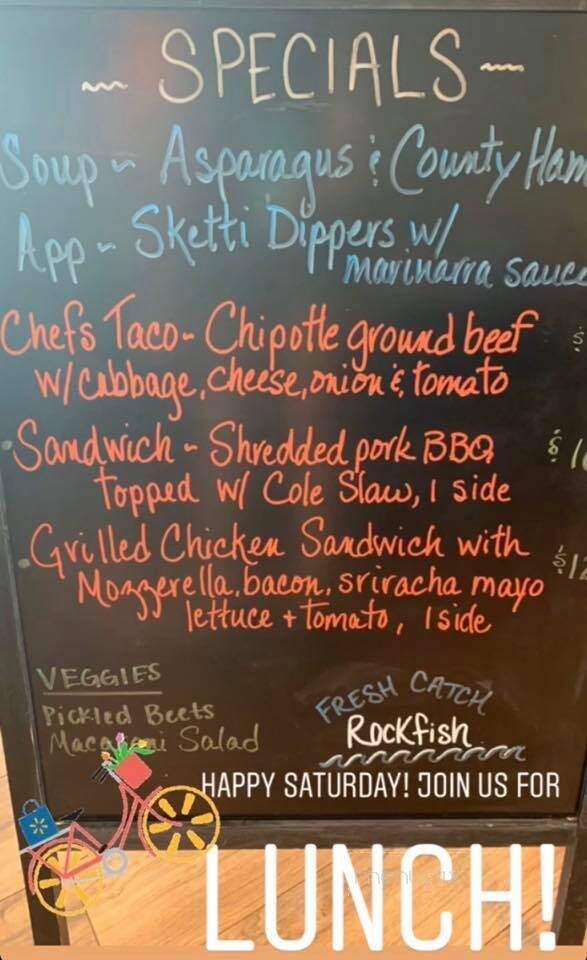 ~ SPECIALS ~
Soup ~ Asparagus & County Ham
App ~ Sketti Dippers w/
Marinarra sauce
Chefs Taco - Chipotle ground beef
w/ Cabbage, cheese, onion & tomato
Sandwich - Shredded pork BBQ
topped w/ Cole Slaw, 1 side
Grilled Chicken Sandwich with
Mozzerella, bacon, sriracha mayo
lettuce + tomato, 1 side
VEGGIES
Pickled Beets
Macaroni Salad
FRESH CATCH
Rockfish
HAPPY SATURDAY! JOIN US FOR
LUNCH!